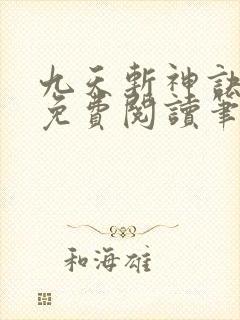 九天斬神訣
免費閱讀筆
和海雄